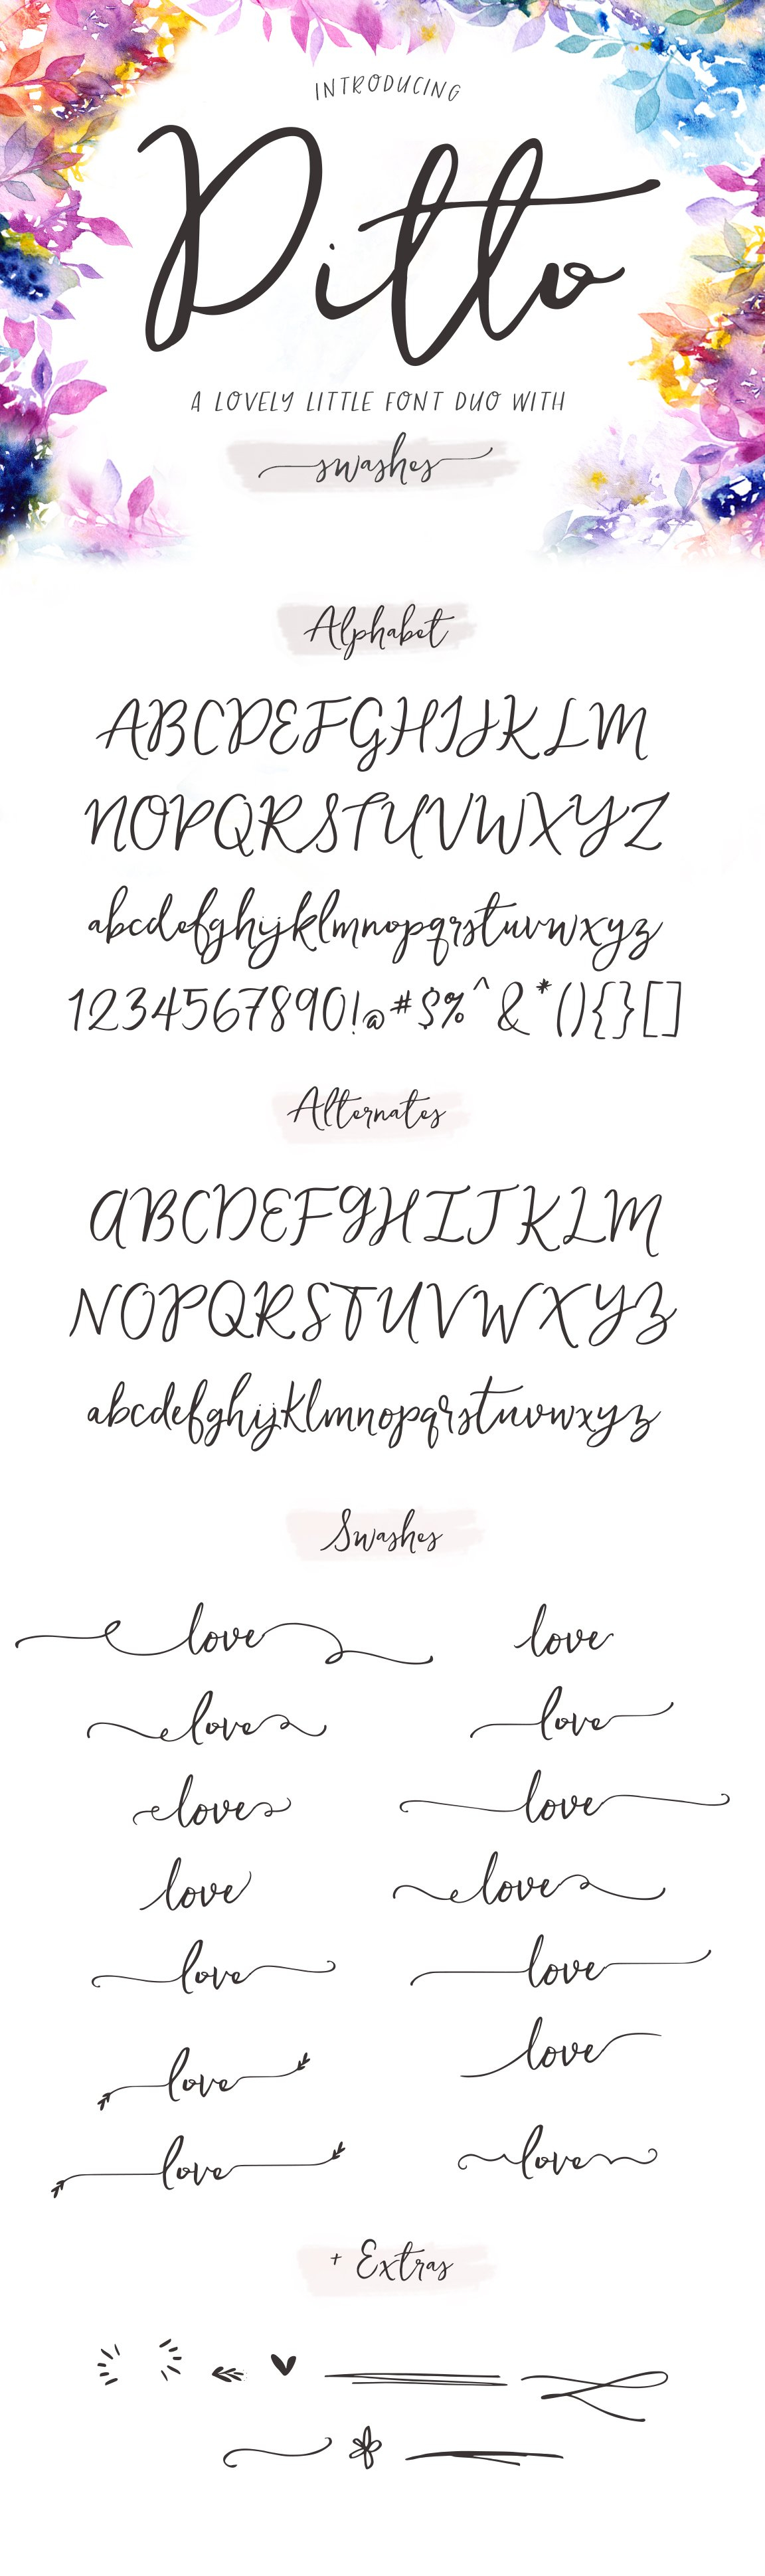 INTRODUCING
Ditto
A LOVELY LITTLE FONT DUO WITH
swashes
Alphabet
ABCDEFGHIJKLM
NOPQRSTUVWXYZ
abcdefghijklmnopqrstuvwxyz
1234567890!@#$%^&*(){}[]
Alternates
ABCDEFGHIJKLM
NOPQRSTUVWXYZ
abcdefghijklmnopqrstuvwxyz
Swashes
love love
love love
love love
love love
love love
love love
love love
+ Extras